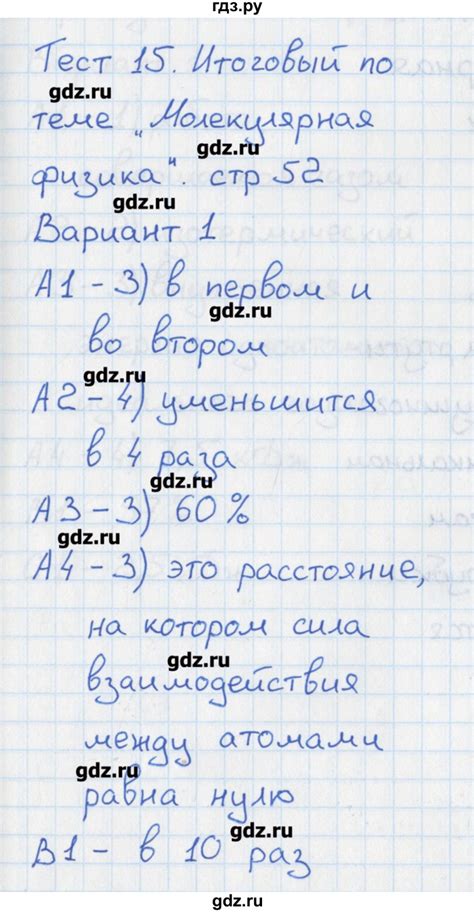 гдз.ру
Тест 15. Итоговый по
gdz.ru
теме „Молекулярная
gdz.ru
физика". стр 52
gdz.ru
Вариант 1
А1 - 3) в первом и
gdz.ru
во втором
gdz.ru
А2 - 4) уменьшится
в 4 раза
gdz.ru
А3 - 3) 60 %
gdz.ru
А4 - 3) это расстояние,
на котором сила
gdz.ru
взаимодействия
между атомами
gdz.ru
равна нулю
gdz.ru
В1 - в 10 раз
gdz.ru